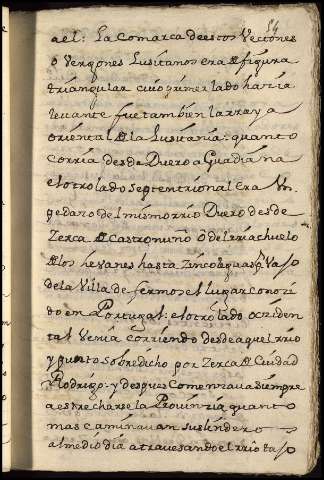 84
ael: La comarca de estos Vectones
o Vergones Lusitanos era de figura
triangular cuio primer lado hazia
levante fue tambien la rraya
oriental de la Lusitania: quanto
corria desde Duero a Guadiana
el otro lado septentrional era Un
pedazo del mismo rrio Duero desde
zerca de Castronuño o del rriachuelo
de los hevanes hasta zinco leguas
de la Villa de fermosel lugar conozi
do en Portugal: el otro lado occiden
tal venia corriendo desde aquel rrio
y punto sobredicho por zerca de Ciudad
Rodrigo: y despues comenzava siempre
a estrecharse la Provinzia quanto
mas caminavan sus lindero
al medio dia atravesando el rrio taxo